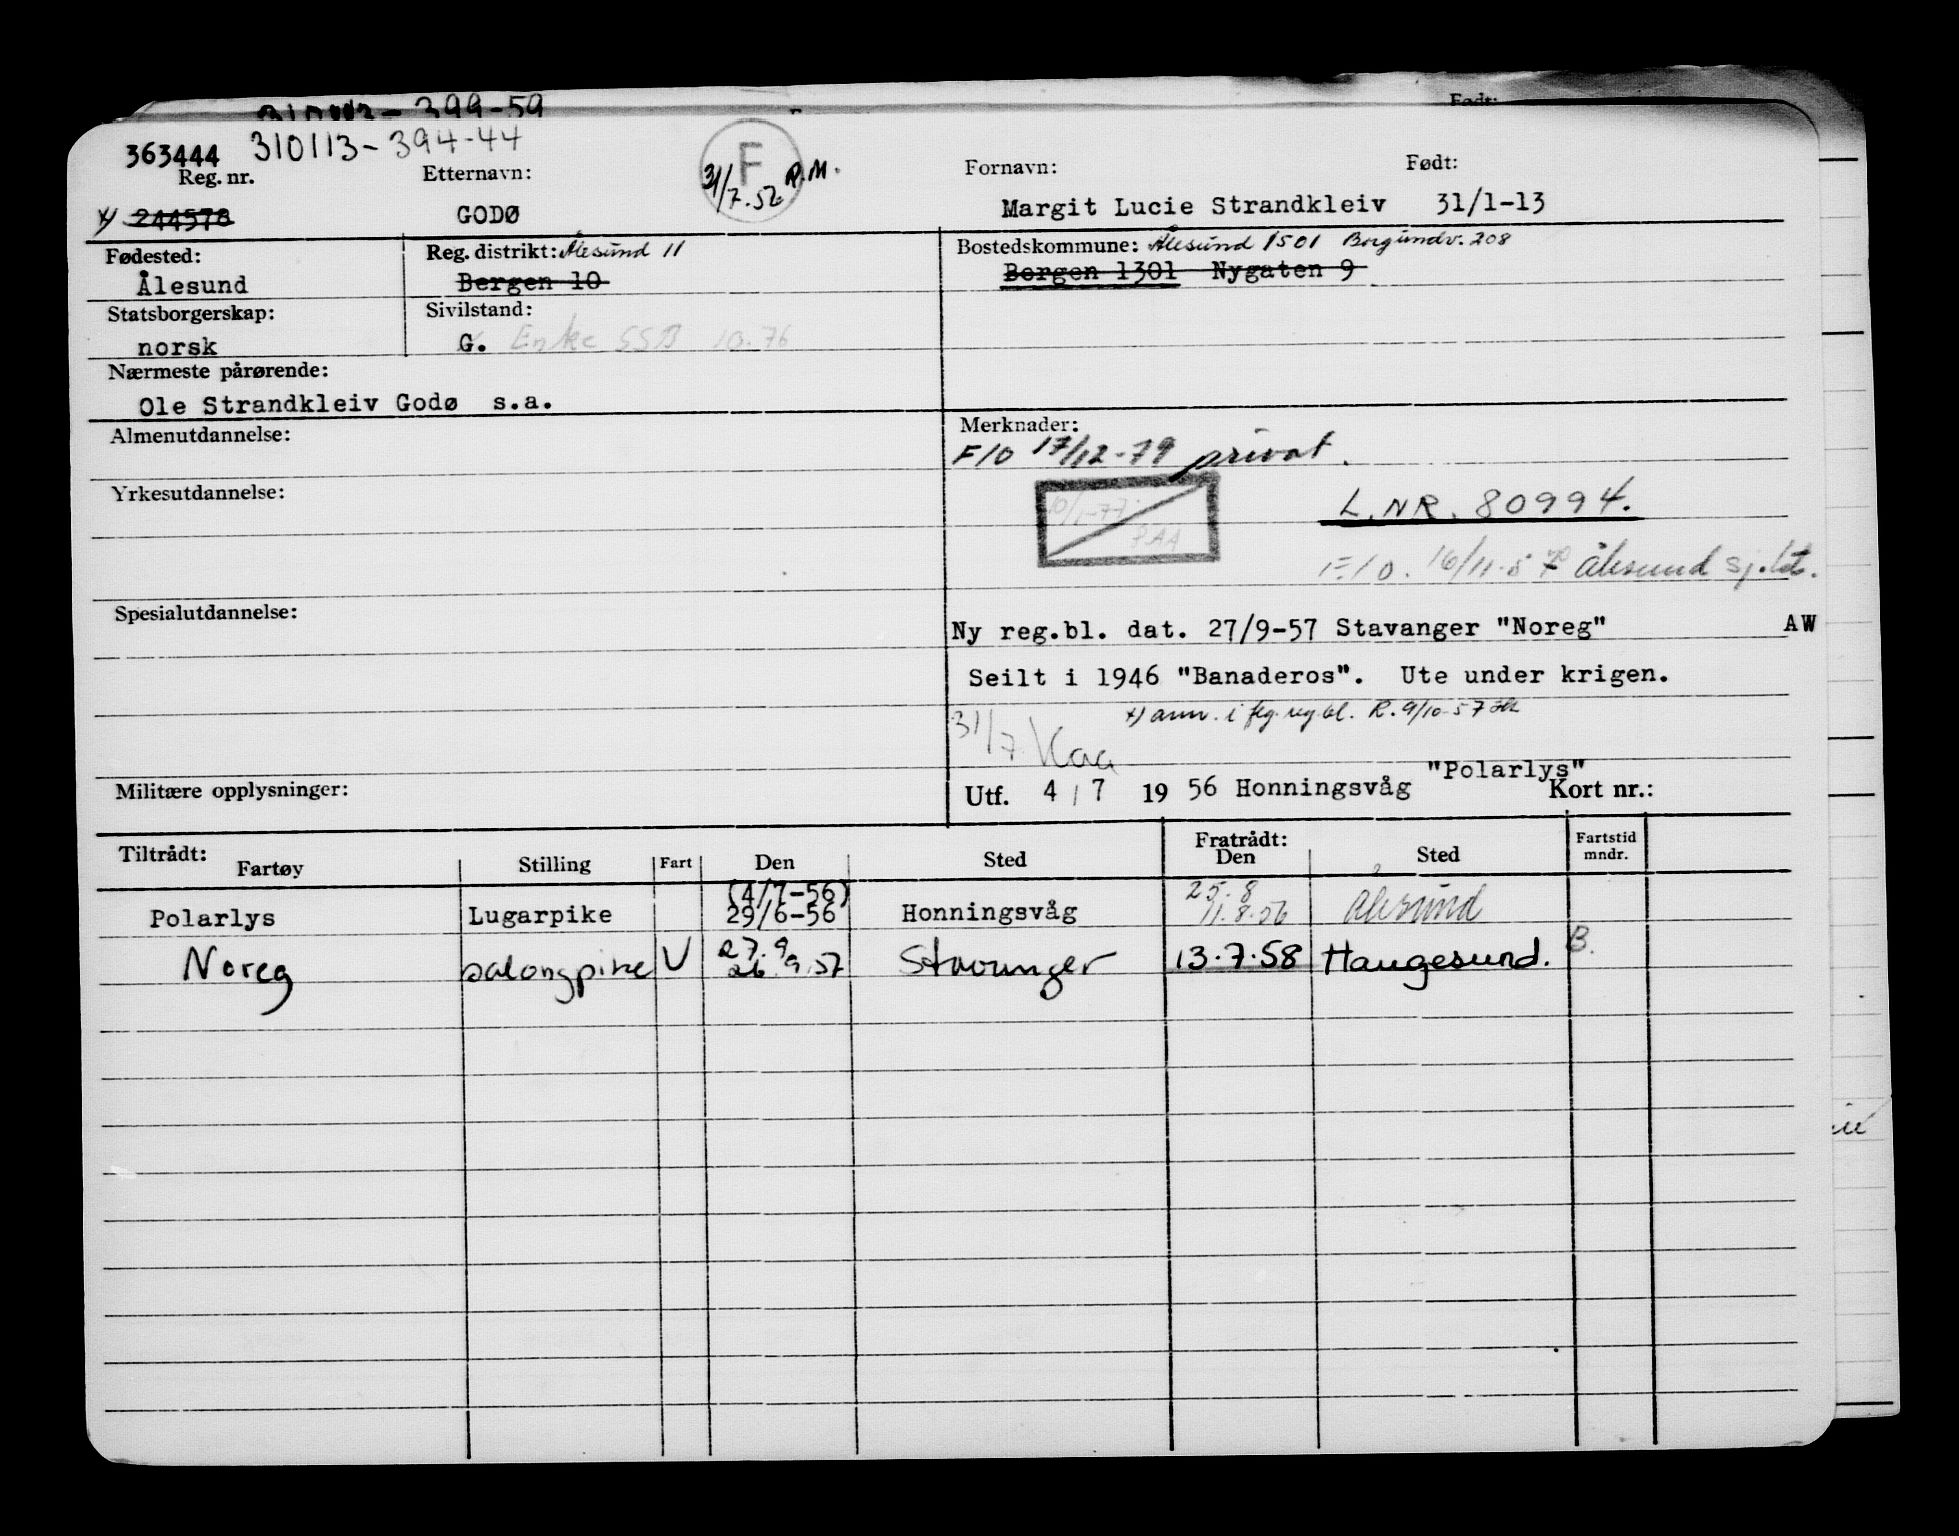 399-59
Født:
363444 310113-394-44
Reg. nr. Etternavn: F Fornavn: Født:
31/7.56 R.M.
x) 244578 GODØ Margit Lucie Strandkleiv 31/1-13
Fødested: Reg. distrikt: Ålesund 11 Bostedskommune: Ålesund 1501 Borgundv. 208
Ålesund Bergen 10 Bergen 1301 Nygaten 9
Statsborgerskap: Sivilstand:
norsk G. Enke SSB 10.76
Nærmeste pårørende:
Ole Strandkleiv Godø s.a.
Almenutdannelse: Merknader:
F/O 17/12-79 privat.
Yrkesutdannelse:
10/1-77. PAA L.NR. 80994.
F/O. 16/11-5 Ålesund sj.
Spesialutdannelse:
Ny reg.bl. dat. 27/9-57 Stavanger "Noreg" AW
Seilt i 1946 "Banaderos". Ute under krigen.
x) ann. i flg. reg.bl. R. 9/10-57
31/7 Kaa
"Polarlys"
Militære opplysninger: Utf. 4 / 7 19 56 Honningsvåg Kort nr.:
Tiltrådt: Fratrådt: Fartstid
Fartøy Stilling Fart Den Sted Den Sted mndr.
(4/7-56) 25.8
Polarlys Lugarpike 29/6-56 Honningsvåg 11.8.56 Ålesund
27.9
Noreg salongpike V 26.9.57 Stavanger 13.7.58 Haugesund. B.